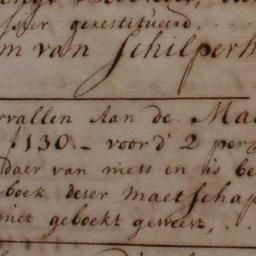 gerestitueerd....
m van Schilperh
rvallen Aan de Ma
f130.- voor d' 2 per
daer van niets en is be
boek deser maetschap
niet geboekt geweest, ...